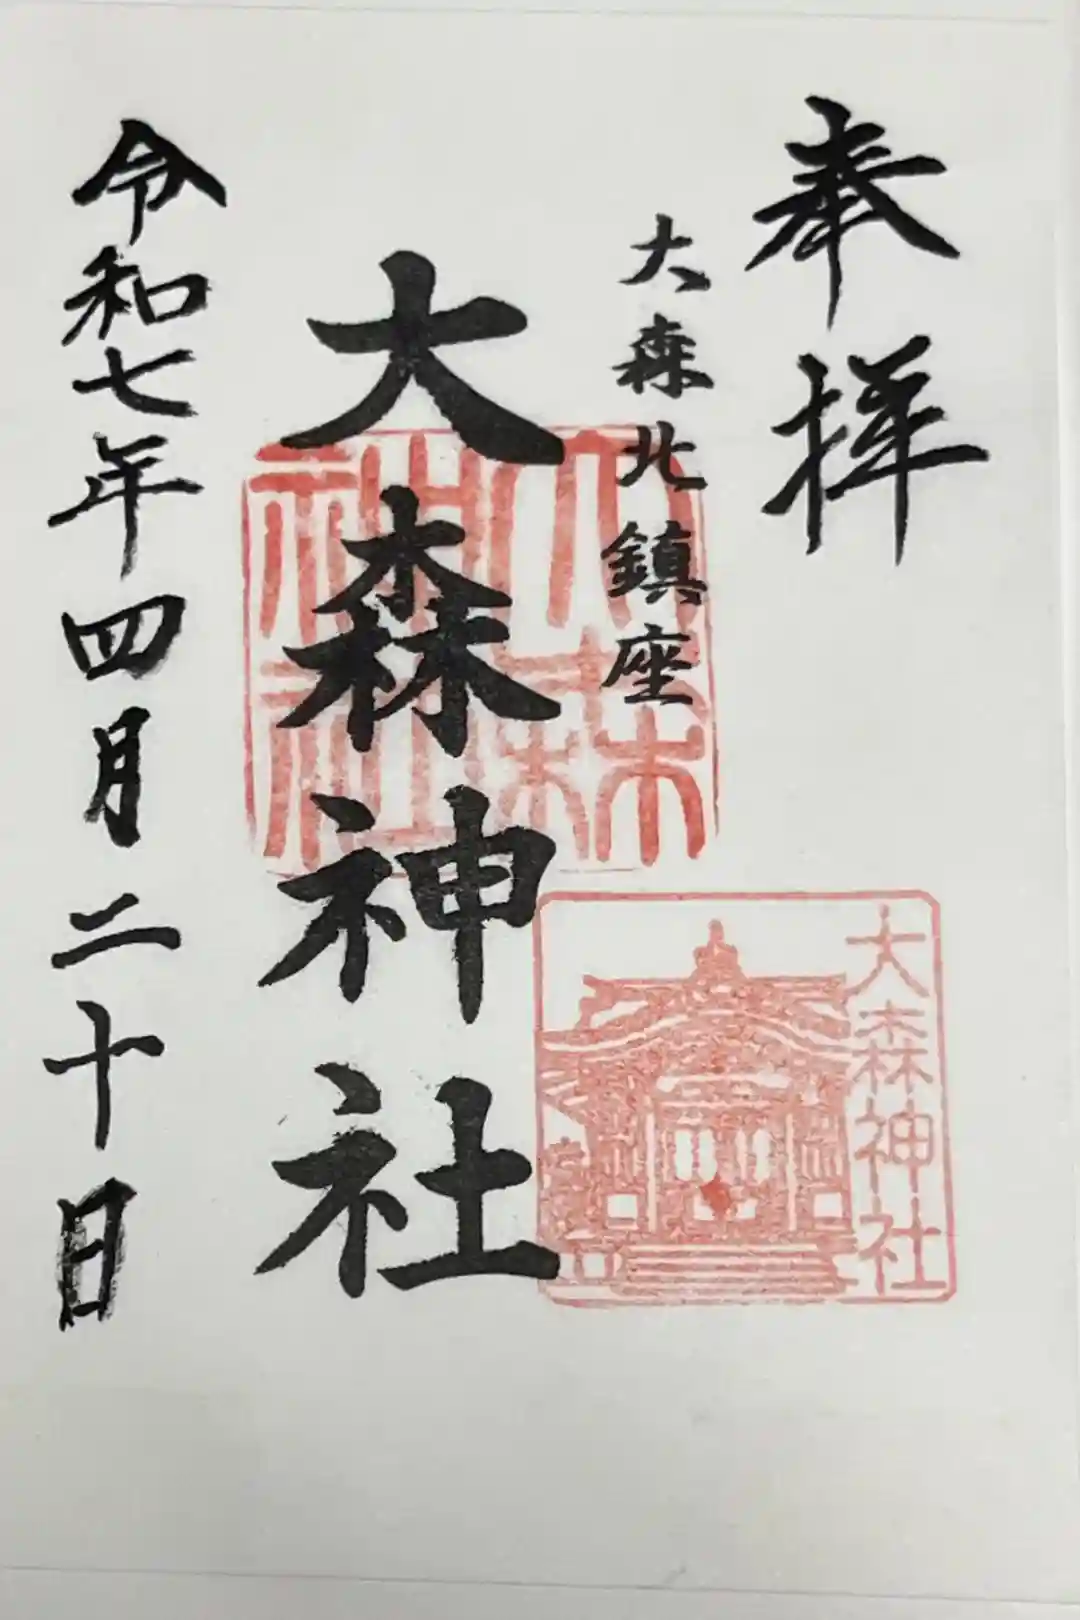 奉拝
大森北鎮座
大森神社
令和七年四月二十日
大森神社
大森神社